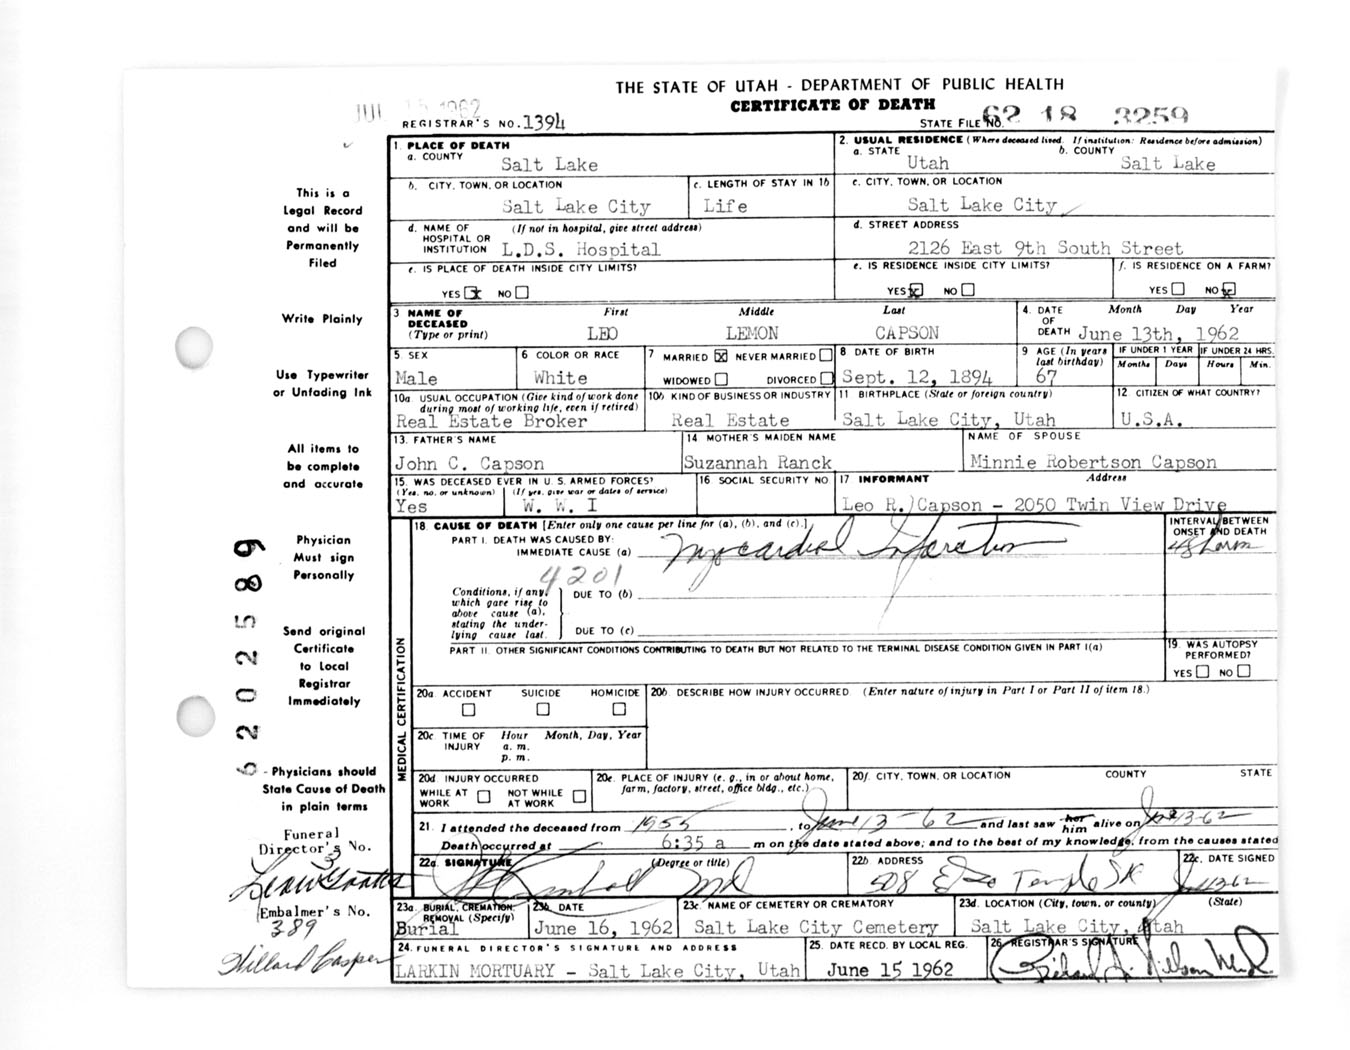 THE STATE OF UTAH - DEPARTMENT OF PUBLIC HEALTH
CERTIFICATE OF DEATH
JUL 15 1962
REGISTRAR'S NO. 1394
STATE FILE NO. 62 18 3259
This is a
Legal Record
and will be
Permanently
Filed
Write Plainly
Use Typewriter
or Unfading Ink
All items to
be complete
and accurate
Physician
Must sign
Personally
Send original
Certificate
to Local
Registrar
Immediately
- Physicians should
State Cause of Death
in plain terms
Funeral
Director's No.
3
Embalmer's No.
389
Willard Casper
6202589
1. PLACE OF DEATH
a. COUNTY
Salt Lake
2. USUAL RESIDENCE (Where deceased lived. If institution: Residence before admission)
a. STATE
Utah
b. COUNTY
Salt Lake
b. CITY, TOWN, OR LOCATION
Salt Lake City
c. LENGTH OF STAY IN 1b
Life
c. CITY, TOWN, OR LOCATION
Salt Lake City
d. NAME OF HOSPITAL OR INSTITUTION
(If not in hospital, give street address)
L.D.S. Hospital
d. STREET ADDRESS
2126 East 9th South Street
e. IS PLACE OF DEATH INSIDE CITY LIMITS?
YES x NO
e. IS RESIDENCE INSIDE CITY LIMITS?
YES x NO
f. IS RESIDENCE ON A FARM?
YES NO x
3 NAME OF DECEASED
(Type or print)
First Middle Last
LEO LEMON CAPSON
4. DATE OF DEATH
Month Day Year
June 13th, 1962
5. SEX
Male
6 COLOR OR RACE
White
7 MARRIED x NEVER MARRIED
WIDOWED DIVORCED
8 DATE OF BIRTH
Sept. 12, 1894
9 AGE (In years last birthday)
67
IF UNDER 1 YEAR
Months Days
IF UNDER 24 HRS.
Hours Min.
10a. USUAL OCCUPATION (Give kind of work done during most of working life, even if retired)
Real Estate Broker
10b KIND OF BUSINESS OR INDUSTRY
Real Estate
11 BIRTHPLACE (State or foreign country)
Salt Lake City, Utah
12 CITIZEN OF WHAT COUNTRY?
U.S.A.
13. FATHER'S NAME
John C. Capson
14 MOTHER'S MAIDEN NAME
Suzannah Ranck
NAME OF SPOUSE
Minnie Robertson Capson
15. WAS DECEASED EVER IN U. S. ARMED FORCES?
(Yes, no, or unknown) (If yes, give war or dates of service)
Yes W. W. I
16 SOCIAL SECURITY NO
17 INFORMANT Address
Leo R. Capson - 2050 Twin View Drive
MEDICAL CERTIFICATION
18. CAUSE OF DEATH [Enter only one cause per line for (a), (b), and (c).]
PART I. DEATH WAS CAUSED BY:
IMMEDIATE CAUSE (a) Myocardial Infarction
INTERVAL BETWEEN ONSET AND DEATH
48 hours
4201
Conditions, if any, which gave rise to above cause (a), stating the underlying cause last.
DUE TO (b)
DUE TO (c)
PART II. OTHER SIGNIFICANT CONDITIONS CONTRIBUTING TO DEATH BUT NOT RELATED TO THE TERMINAL DISEASE CONDITION GIVEN IN PART I(a)
19. WAS AUTOPSY PERFORMED?
YES NO
20a. ACCIDENT SUICIDE HOMICIDE
20b. DESCRIBE HOW INJURY OCCURRED. (Enter nature of injury in Part I or Part II of item 18.)
20c TIME OF INJURY
Hour Month, Day, Year
a. m.
p. m.
20d. INJURY OCCURRED
WHILE AT WORK NOT WHILE AT WORK
20e. PLACE OF INJURY (e. g., in or about home, farm, factory, street, office bldg., etc.)
20f. CITY, TOWN, OR LOCATION COUNTY STATE
21. I attended the deceased from 1955, to June 13-62 and last saw her him alive on June 13-62
Death occurred at 6:35 a m on the date stated above; and to the best of my knowledge, from the causes stated
22a. SIGNATURE (Degree or title)
Kimball MD
22b. ADDRESS
508 E So Temple SLC
22c. DATE SIGNED
23a. BURIAL, CREMATION, REMOVAL (Specify)
Burial
23b. DATE
June 16, 1962
23c. NAME OF CEMETERY OR CREMATORY
Salt Lake City Cemetery
23d. LOCATION (City, town, or county) (State)
Salt Lake City, Utah
24. FUNERAL DIRECTOR'S SIGNATURE AND ADDRESS
LARKIN MORTUARY - Salt Lake City, Utah
25. DATE RECD. BY LOCAL REG.
June 15 1962
26. REGISTRAR'S SIGNATURE